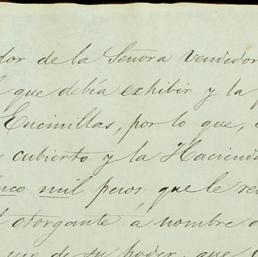 dor de la Señora Vendedor
que debía exhibir y la
Encinillas, por lo que,
cubierto y la Hacienda
nco mil pesos, que le re
otorgante a nombre
uso de su poder, que